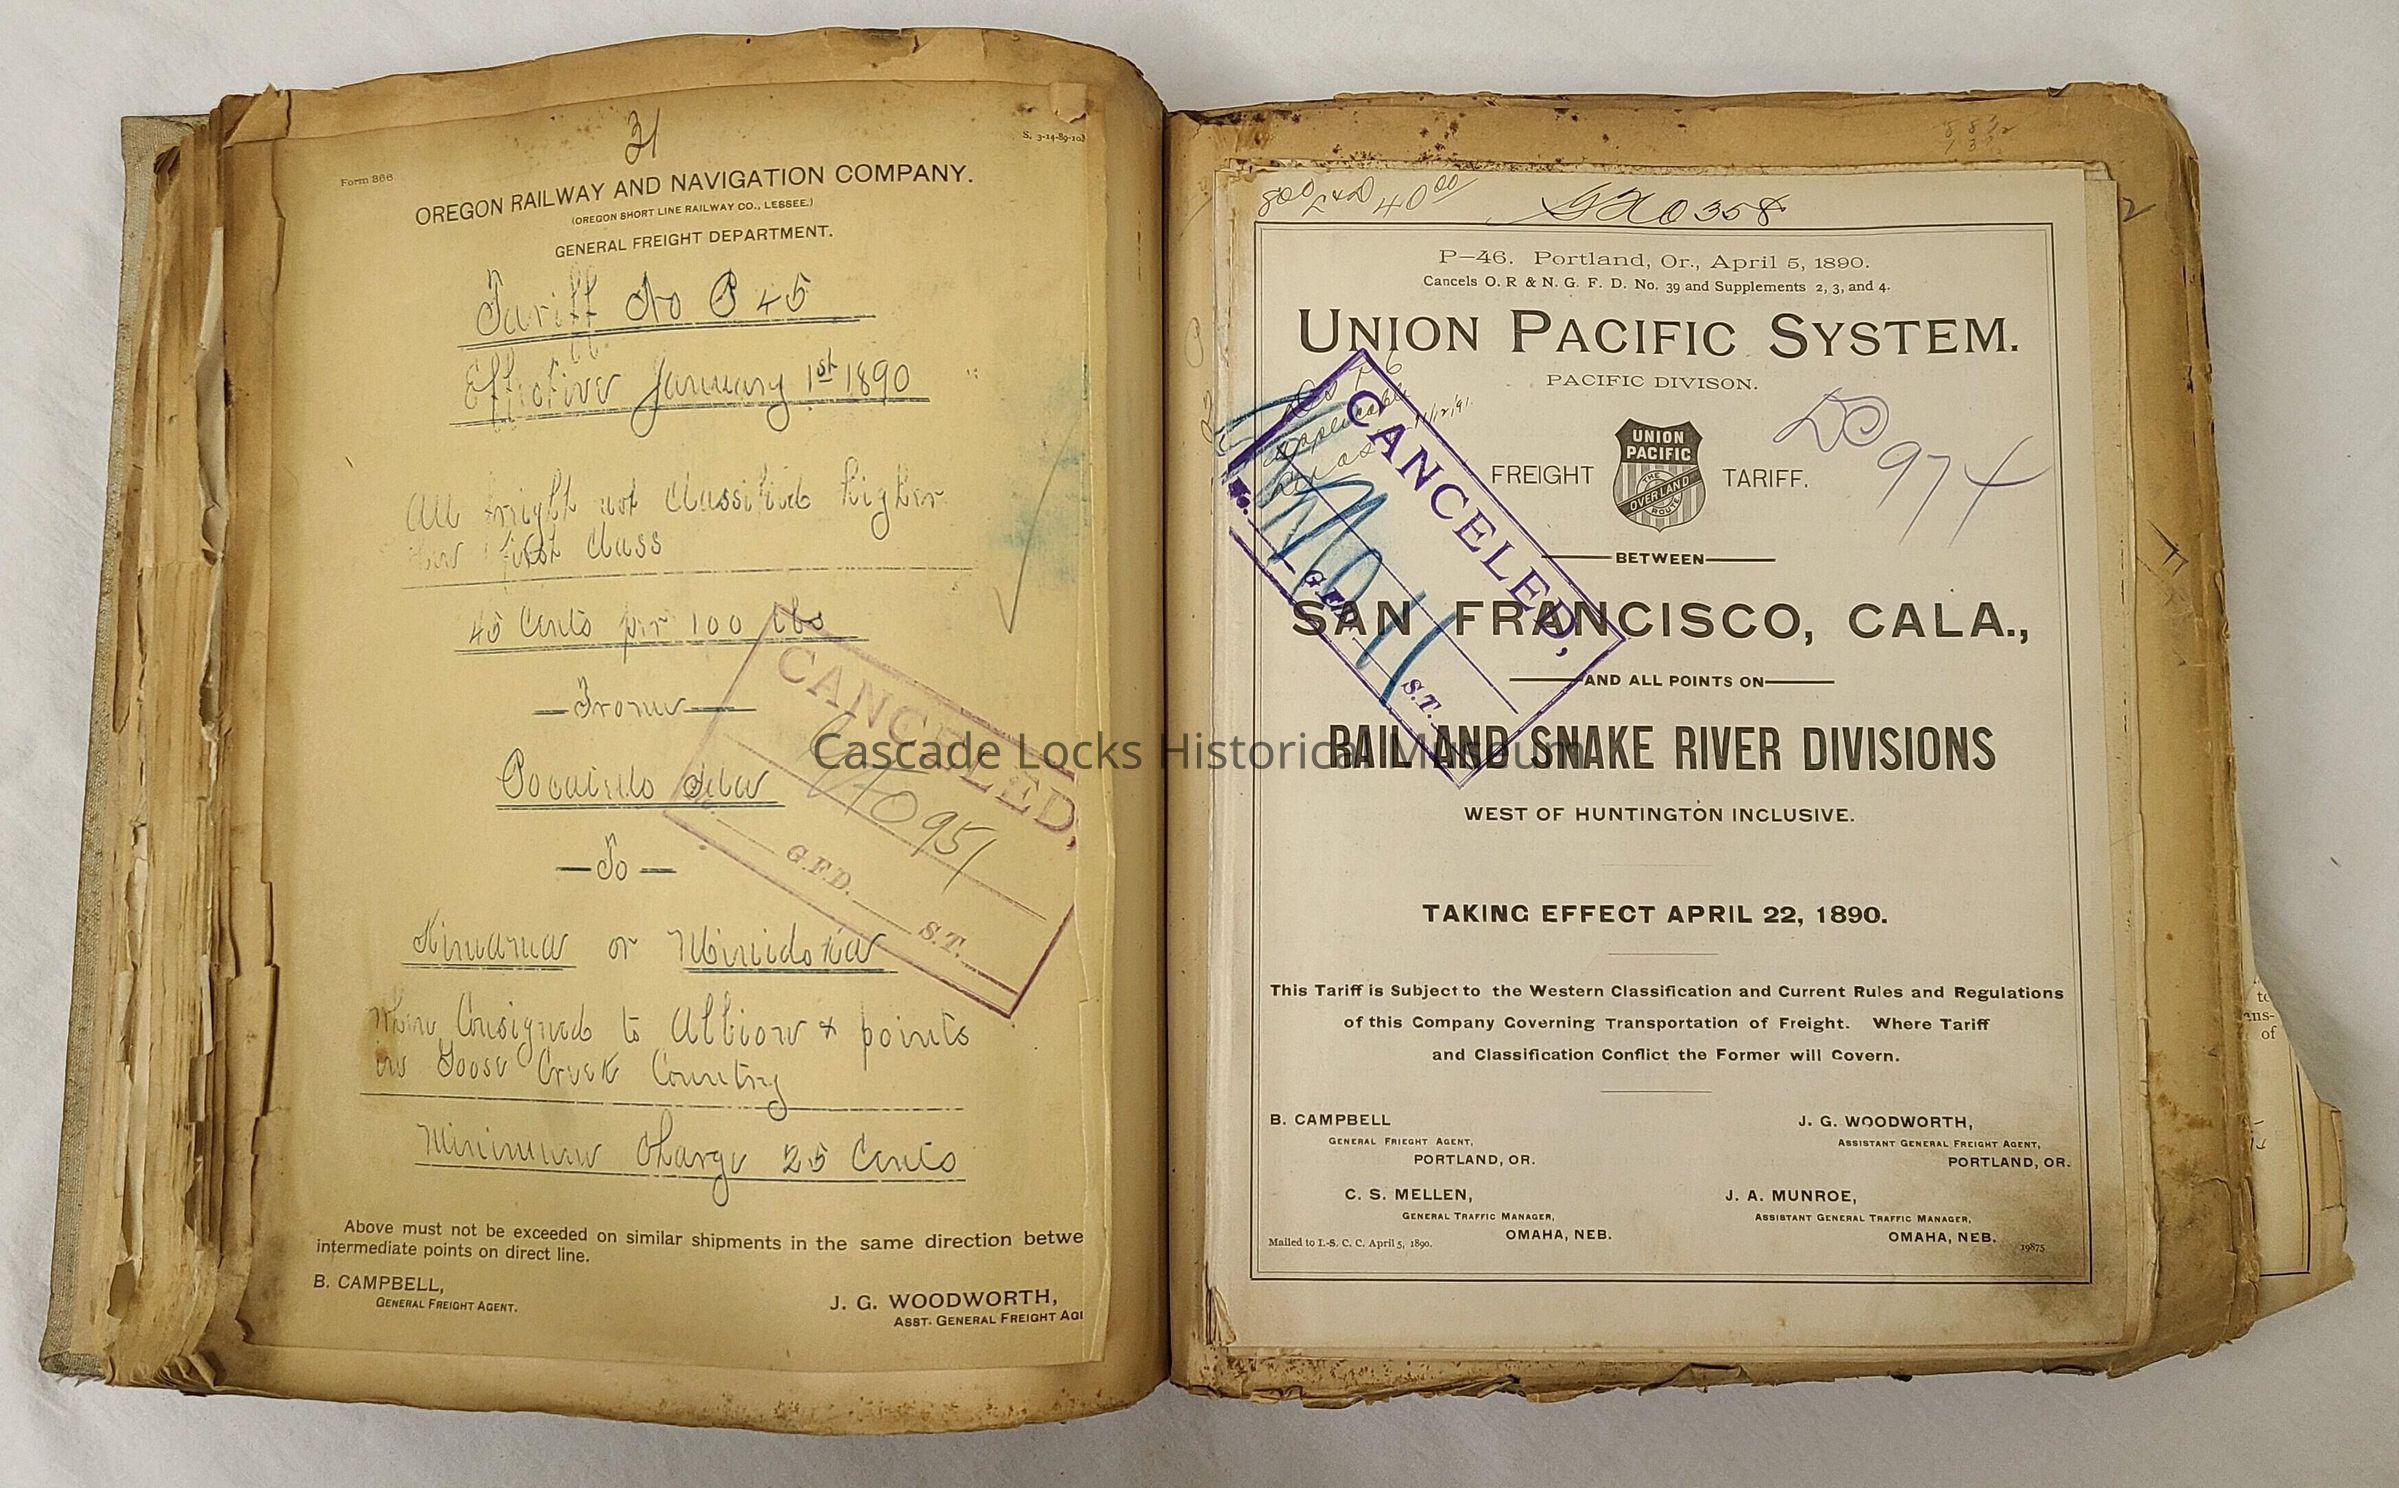 31
S. 3-14-89-10
Form 866
OREGON RAILWAY AND NAVIGATION COMPANY.
(OREGON SHORT LINE RAILWAY CO., LESSEE.)
GENERAL FREIGHT DEPARTMENT.
Tariff No P 45
Effective January 1st 1890
All freight not Classified higher
than first Class
45 Cents per 100 lbs
From
Pocatello Idaho
To
Kimama or Minidoka
When Consigned to Albion & points
in Goose Creek Country
Minimum Charge 25 Cents
CANCELED,
951
G.F.D. S.T.
Above must not be exceeded on similar shipments in the same direction betwe
intermediate points on direct line.
B. CAMPBELL,
GENERAL FREIGHT AGENT.
J. G. WOODWORTH,
ASST. GENERAL FREIGHT AGE
4000
0358
P-46. Portland, Or., April 5, 1890.
Cancels O. R & N. G. F. D. No. 39 and Supplements 2, 3, and 4.
UNION PACIFIC SYSTEM.
PACIFIC DIVISON.
FREIGHT
UNION
PACIFIC
THE
OVERLAND
ROUTE
TARIFF.
974
CANCELED,
No. G.F.D. S.T.
BETWEEN
SAN FRANCISCO, CALA.,
AND ALL POINTS ON
RAIL AND SNAKE RIVER DIVISIONS
WEST OF HUNTINGTON INCLUSIVE.
TAKING EFFECT APRIL 22, 1890.
This Tariff is Subject to the Western Classification and Current Rules and Regulations
of this Company Governing Transportation of Freight. Where Tariff
and Classification Conflict the Former will Govern.
B. CAMPBELL
GENERAL FRIEGHT AGENT,
PORTLAND, OR.
J. G. WOODWORTH,
ASSISTANT GENERAL FREIGHT AGENT,
PORTLAND, OR.
C. S. MELLEN,
GENERAL TRAFFIC MANAGER,
OMAHA, NEB.
J. A. MUNROE,
ASSISTANT GENERAL TRAFFIC MANAGER,
OMAHA, NEB.
Mailed to I.-S. C. C. April 5, 1890.
19875
to
ens-
of
Cascade Locks Historical Museum